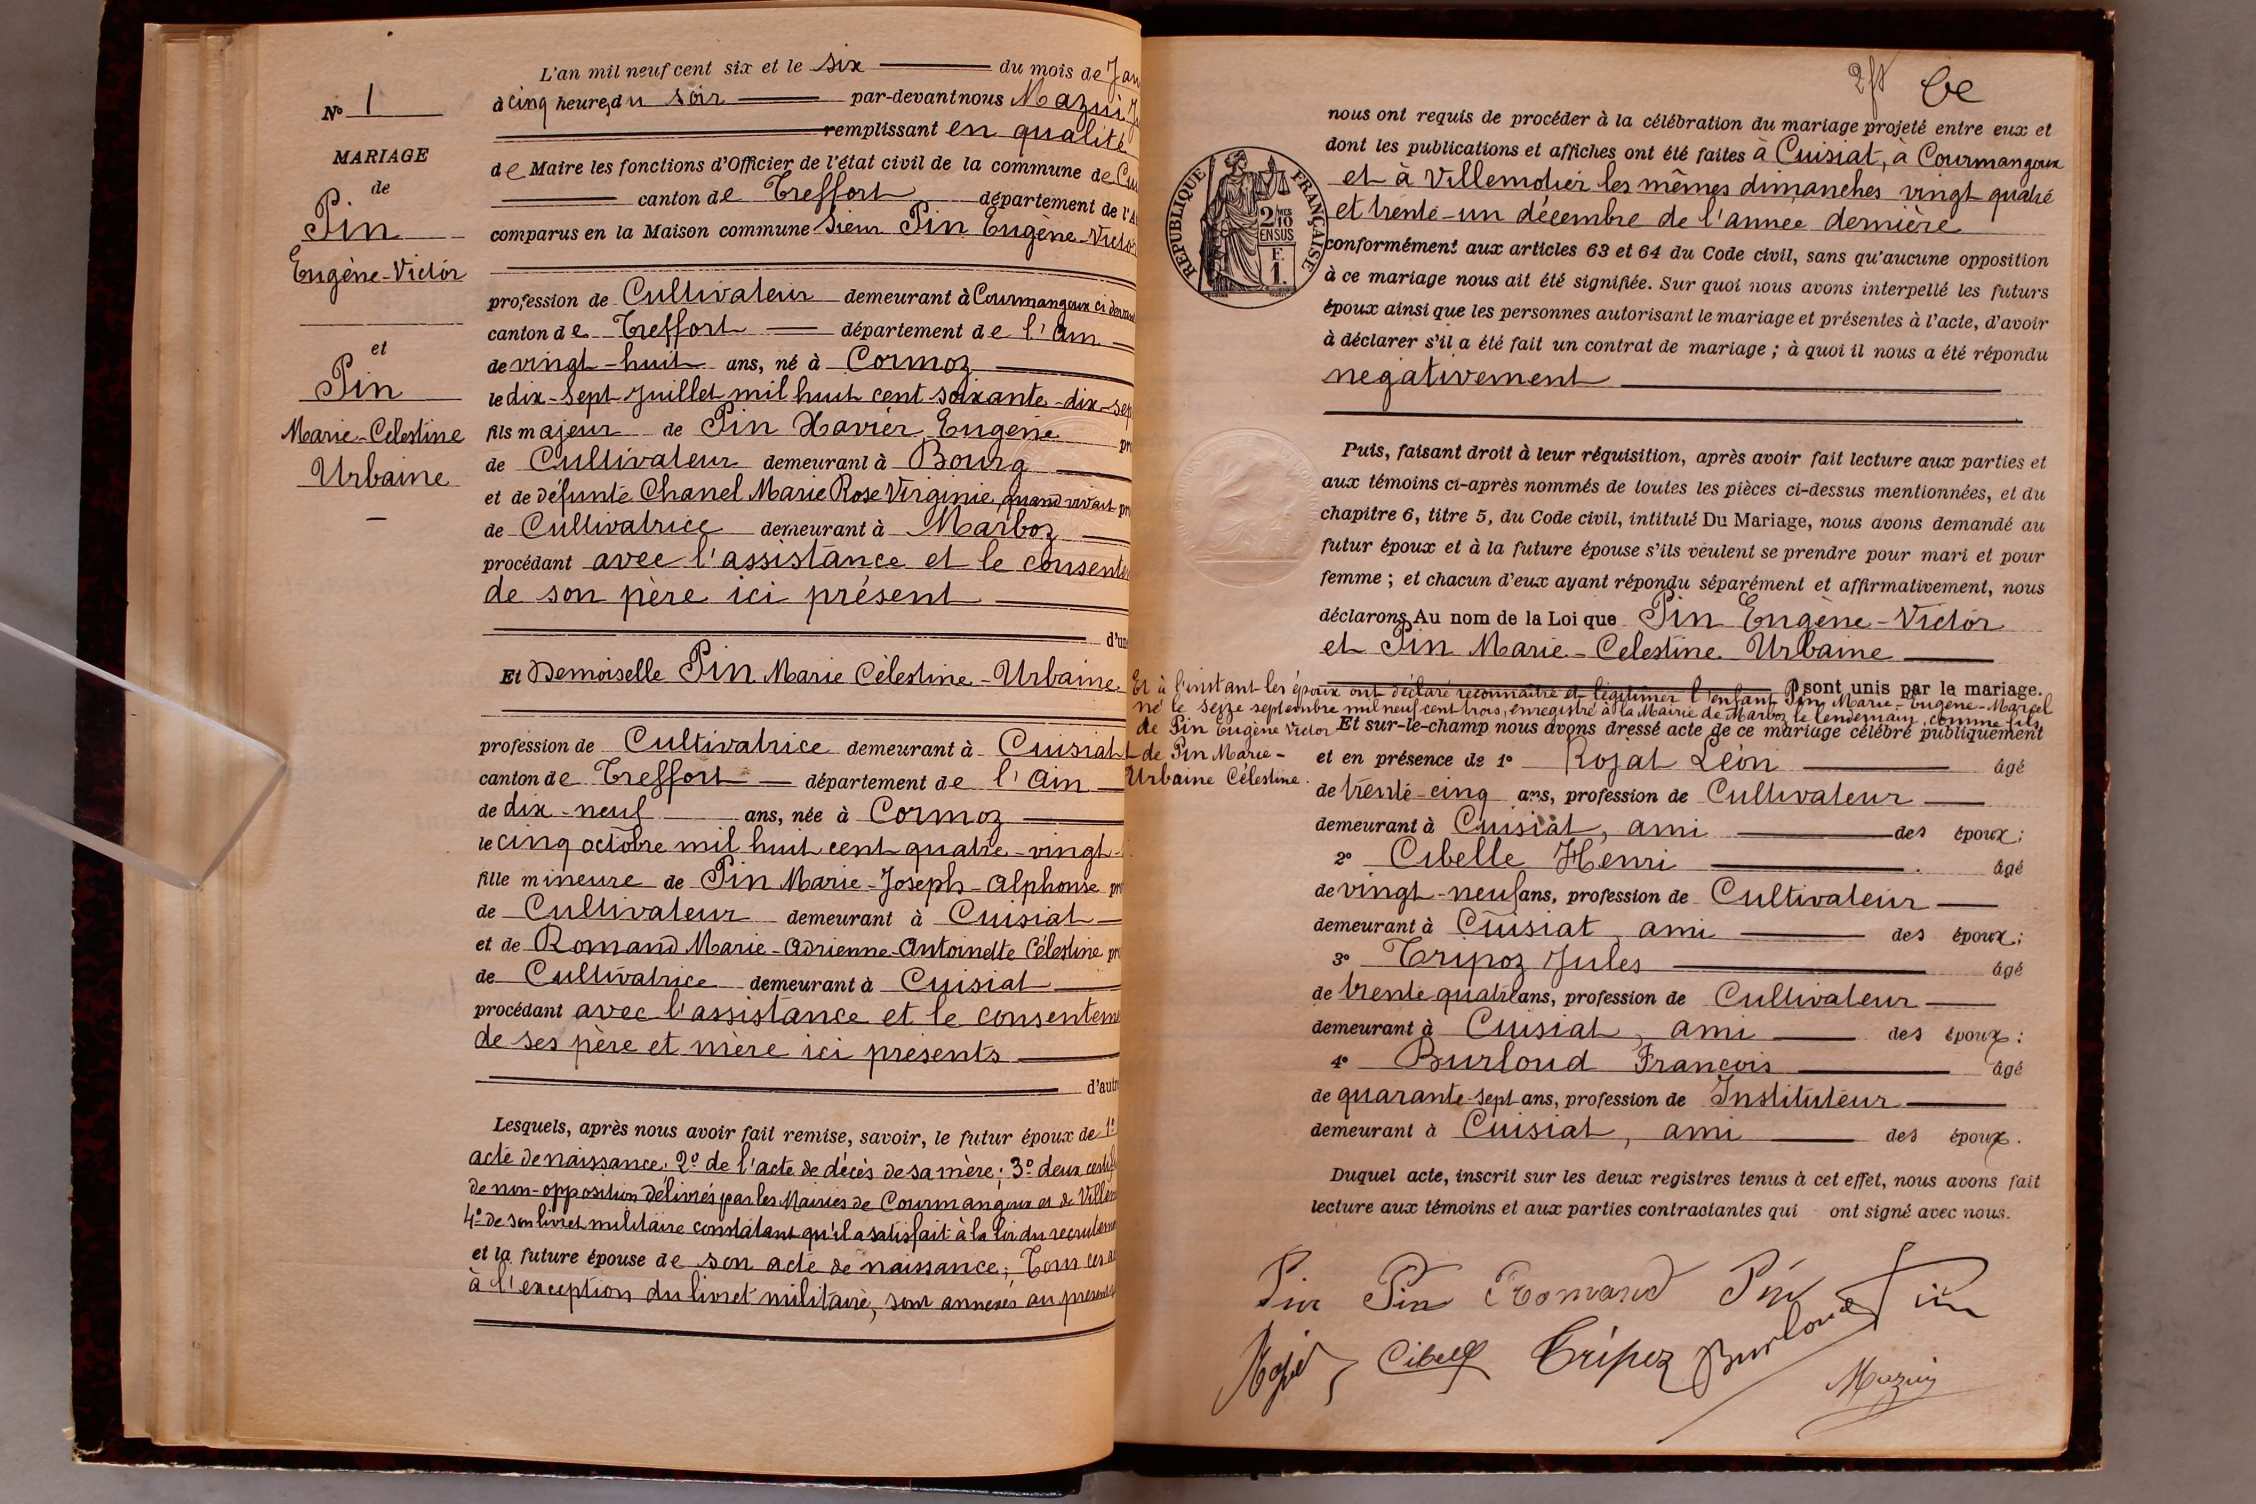 N° 1
MARIAGE
de
Pin
Eugène-Victor
et
Pin
Marie-Celestine
Urbaine
L'an mil neuf cent six et le six du mois de Jan
à cinq heures du soir par-devant nous Mazui
remplissant en qualité
de Maire les fonctions d'Officier de l'état civil de la commune de Cui
canton de Treffort département de l'A
comparus en la Maison commune Sieur Pin Eugène-Victor
profession de Cultivateur demeurant à Courmangoux ci devant
canton de Treffort département de l'Ain
de vingt-huit ans, né à Cormoz
le dix-sept Juillet mil huit cent soixante-dix-sep
fils majeur de Pin Xavier Eugène pr
de Cultivateur demeurant à Bourg
et de défunte Chanel Marie Rose Virginie, quand vivait pr
de Cultivatrice demeurant à Marboz
procédant avec l'assistance et le consente
de son père ici présent
d'une
Et Demoiselle Pin Marie Célestine-Urbaine
profession de Cultivatrice demeurant à Cuisiat
canton de Treffort département de l'Ain
de dix-neuf ans, née à Cormoz
le cinq octobre mil huit cent quatre-vingt-
fille mineure de Pin Marie-Joseph-Alphonse pr
de Cultivateur demeurant à Cuisiat
et de Romand Marie-Adrienne-Antoinette Célestine pr
de Cultivatrice demeurant à Cuisiat
procédant avec l'assistance et le consenteme
de ses père et mère ici présents
d'autre
Lesquels, après nous avoir fait remise, savoir, le futur époux de 1°
acte de naissance; 2° de l'acte de décès de sa mère; 3° deux certifi
de non-opposition délivrés par les Mairies de Courmangoux et de Villem
4° de son livret militaire constatant qu'il a satisfait à la loi du recrutemen
et la future épouse de son acte de naissance; Tous ces ac
à l'exception du livret militaire, sont annexés au présent
2ft be
RÉPUBLIQUE FRANÇAISE
2/10 MES
EN SUS
F.
1.
nous ont requis de procéder à la célébration du mariage projeté entre eux et
dont les publications et affiches ont été faites à Cuisiat, à Courmangoux
et à Villemotier les mêmes dimanches vingt quatre
et trente-un décembre de l'année dernière
conformément aux articles 63 et 64 du Code civil, sans qu'aucune opposition
à ce mariage nous ait été signifiée. Sur quoi nous avons interpellé les futurs
époux ainsi que les personnes autorisant le mariage et présentes à l'acte, d'avoir
à déclarer s'il a été fait un contrat de mariage ; à quoi il nous a été répondu
négativement
Puis, faisant droit à leur réquisition, après avoir fait lecture aux parties et
aux témoins ci-après nommés de toutes les pièces ci-dessus mentionnées, et du
chapitre 6, titre 5, du Code civil, intitulé Du Mariage, nous avons demandé au
futur époux et à la future épouse s'ils veulent se prendre pour mari et pour
femme ; et chacun d'eux ayant répondu séparément et affirmativement, nous
déclarons Au nom de la Loi que Pin Eugène-Victor
et Pin Marie-Celestine Urbaine
sont unis par le mariage.
Et à l'instant les époux ont déclaré reconnaître et légitimer l'enfant Pin Marie-Eugène-Marcel
né le seize septembre mil neuf cent trois, enregistré à la Mairie de Marboz le lendemain, comme fils
de Pin Eugène Victor
et de Pin Marie-
Urbaine Célestine.
Et sur-le-champ nous avons dressé acte de ce mariage célébré publiquement
et en présence de 1° Rojat Léon âgé
de trente-cinq ans, profession de Cultivateur
demeurant à Cuisiat, ami des époux;
2° Cibelle Henri âgé
de vingt-neuf ans, profession de Cultivateur
demeurant à Cuisiat, ami des époux;
3° Tripoz Jules âgé
de trente quatre ans, profession de Cultivateur
demeurant à Cuisiat, ami des époux;
4° Burloud François âgé
de quarante-sept ans, profession de Instituteur
demeurant à Cuisiat, ami des époux.
Duquel acte, inscrit sur les deux registres tenus à cet effet, nous avons fait
lecture aux témoins et aux parties contractantes qui ont signé avec nous.
Pin Pin Romand Pin Pin
Rojat Cibelle Tripoz Burloud
Mazuy